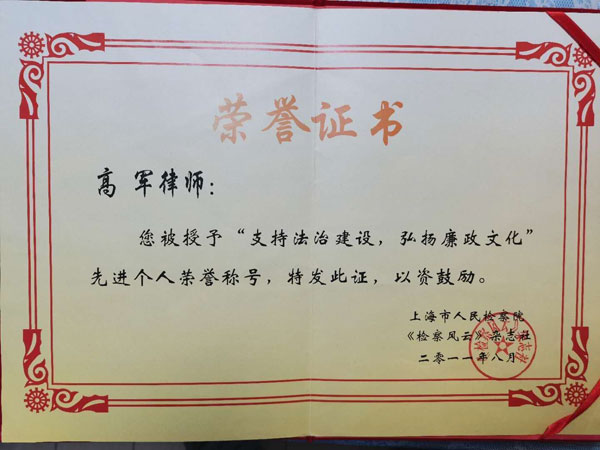 荣誉证书
高军律师：
您被授予“支持法治建设，弘扬廉政文化”
先进个人荣誉称号，特发此证，以资鼓励。
上海市人民检察院
《检察风云》杂志社
二零一一年八月